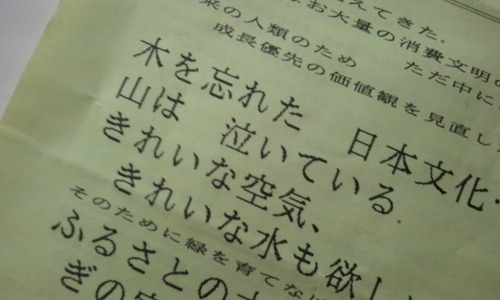 えてきた.
なお大量の消費文明の
来の人類のため　ただ中に
成長優先の価値観を見直し
木を忘れた　日本文化.
山は　泣いている.
きれいな空気、
きれいな水も欲し
そのために緑を育てな
ふるさとの
ぎの